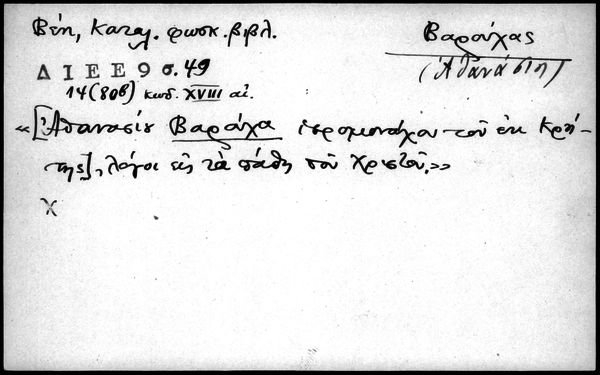 Βέη, Καταλ. φωσκ. βιβλ.
Βαρούχας
(Ἀθανάσιη)
ΔΙΕΕ 9 σ. 49
14 (808) κωδ. XVIII αἰ.
«[Ἀθανασίου Βαρούχα ἱερομονάχου τοῦ ἐκ Κρή-
της], λόγοι εἰς τὰ πάθη τοῦ Χριστοῦ.»
χ